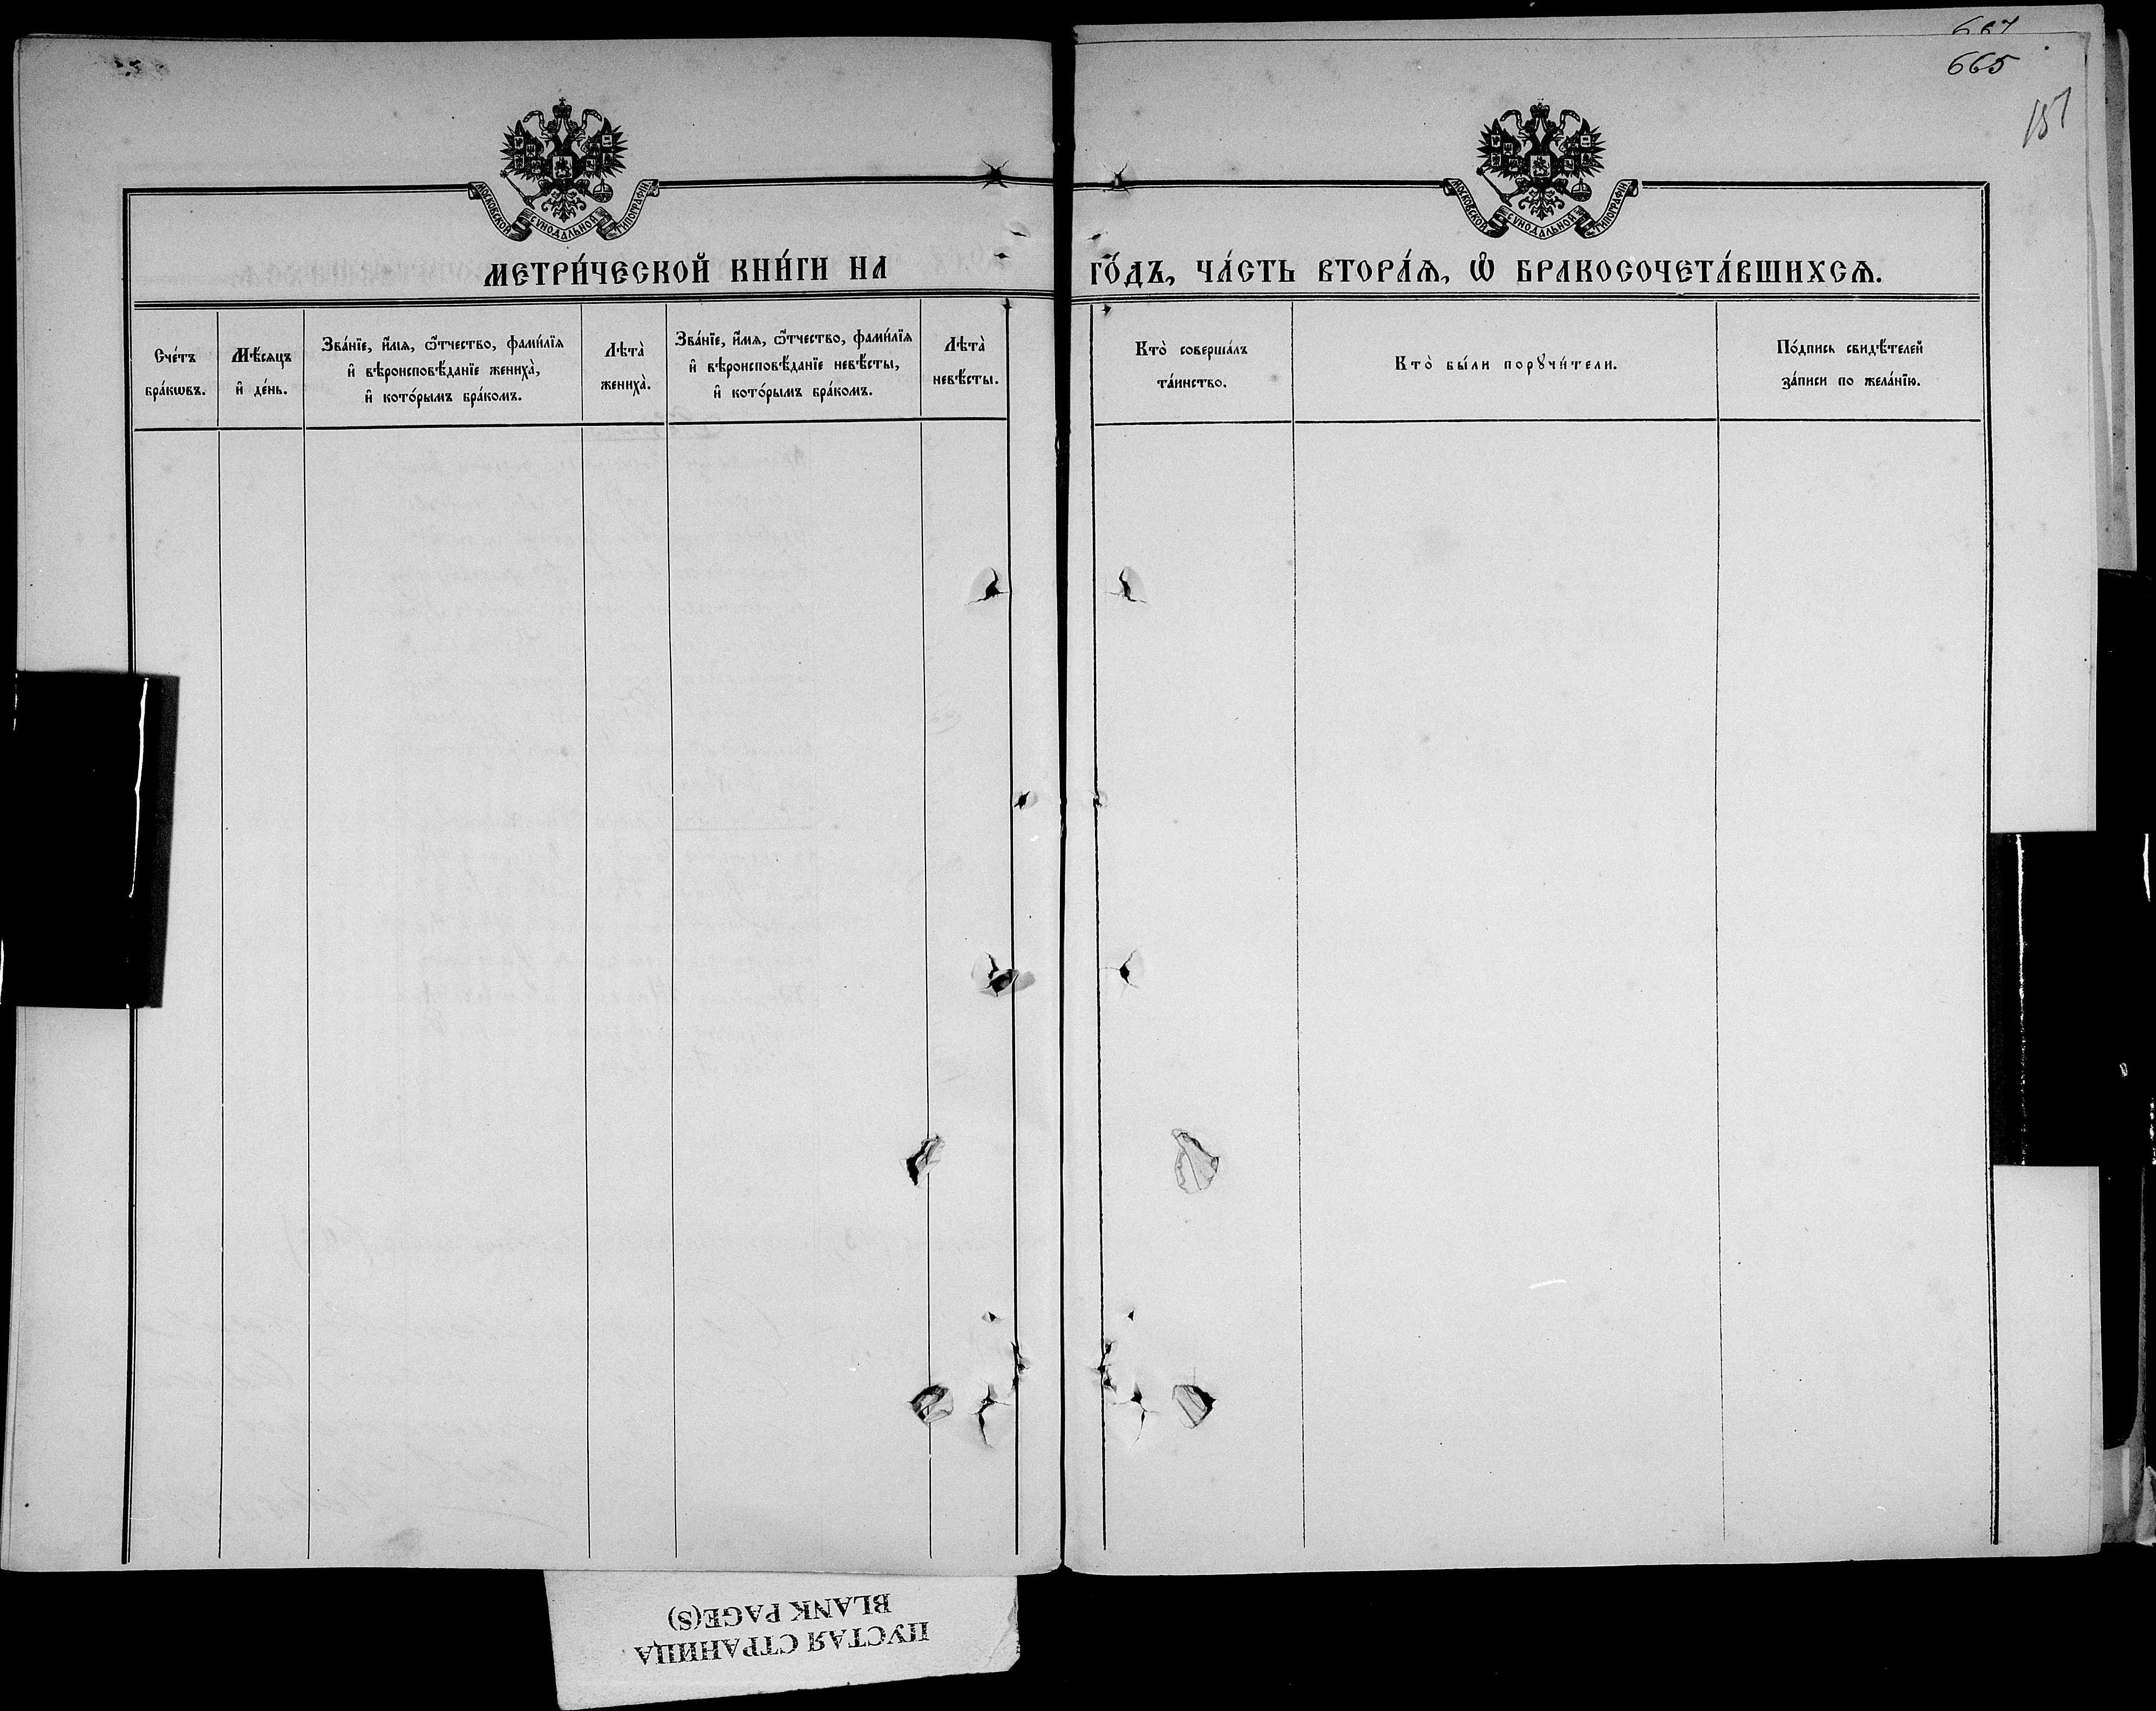 667
665
157
МОСКОВСКОЙ СѴНОДАЛЬНОЙ ТИПОГРАФІИ.
МОСКОВСКОЙ СѴНОДАЛЬНОЙ ТИПОГРАФІИ.
МЕТРИ́ЧЕСКОЙ КНИ́ГИ НА
ГО́ДЪ, ЧА́СТЬ ВТОРА́Ѧ, Ѽ БРАКОСОЧЕТА́ВШИХСѦ.
Сче́тъ
бра́кѡвъ.
Мѣ́сяцъ
и҆ де́нь.
Зва́нїе, и҆́мѧ, ѻ҆́тчество, фами́лїѧ
и҆ вѣроисповѣ́данїе жениха̀,
и҆ кото́рымъ бра́комъ.
Лѣта̀
жениха̀.
Зва́нїе, и҆́мѧ, ѻ҆́тчество, фами́лїѧ
и҆ вѣроисповѣ́данїе невѣ́сты,
и҆ кото́рымъ бра́комъ.
Лѣта̀
невѣ́сты.
Кто̀ соверша́лъ
та́инство.
Кто̀ бы́ли порꙋчи́тели.
По́дпись свидѣ́телей
за́писи по жела́нїю.
ПУСТАЯ СТРАНИЦА
BLANK PAGE(S)